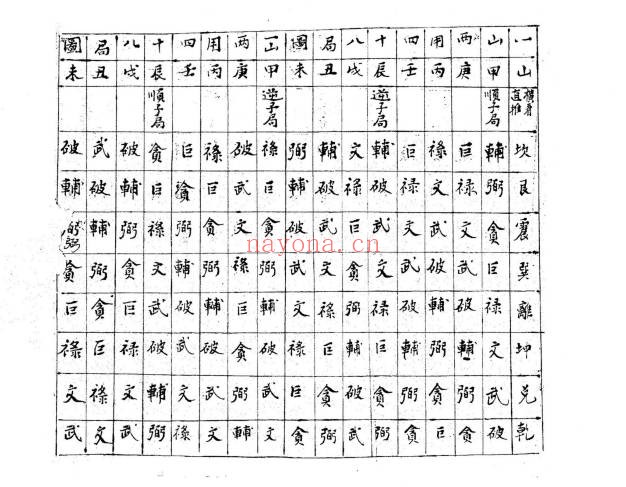 一山橫看直推坎艮震巽離坤兌乾
山甲順子局輔弼貪巨祿文武破
兩庚巨祿文武破輔弼貪
用丙祿文武破輔弼貪巨
四壬巨祿文武破輔弼貪
十辰逆子局輔破武文祿巨貪弼
八戌文祿巨貪弼輔破武
局丑輔破武文祿巨貪弼
圖未弼輔破武文祿巨貪
一山甲逆子局祿巨貪弼輔破武文
兩庚破武文祿巨貪弼輔
用丙祿巨貪弼輔破武文
四壬巨貪弼輔破武文祿
十辰順子局貪巨祿文武破輔弼
八戌破輔弼貪巨祿文武
局丑武破輔弼貪巨祿文
圖未破輔弼貪巨祿文武
nayona.cn